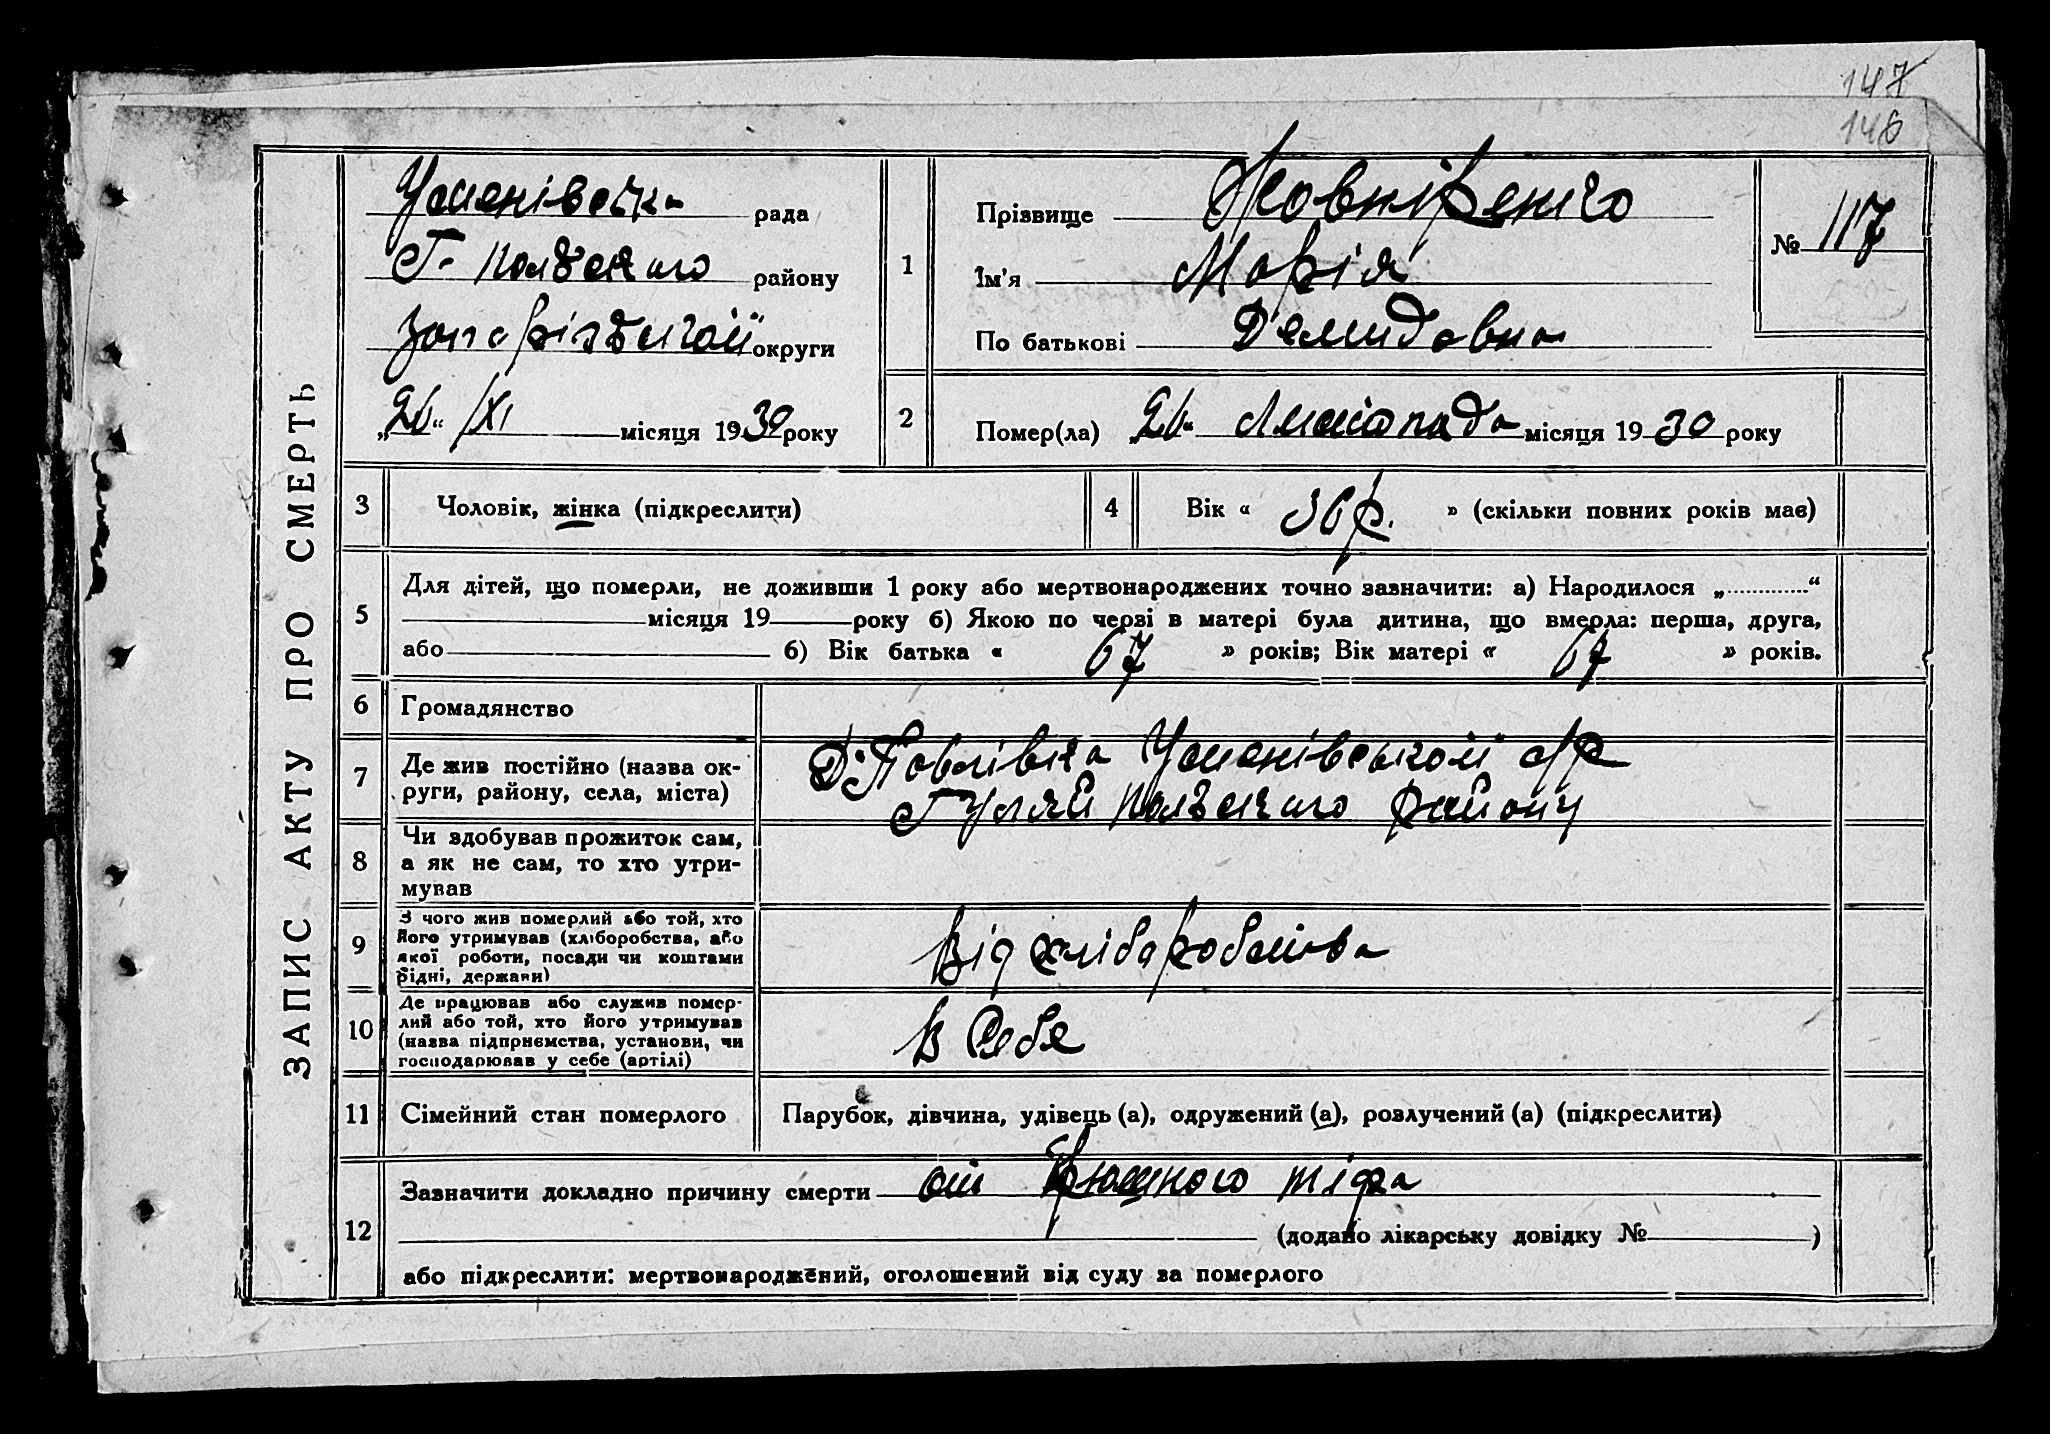 147
146
ЗАПИС АКТУ ПРО СМЕРТЬ
Успенівська рада
Г-Польського району
Запорізької округи
„26“ XI місяця 1930 року
1
Прізвище Жовніренко
Ім'я Марія
По батькові Демидовна
№ 117
2
Помер(ла) 26 Листопада місяця 1930 року
3 Чоловік, жінка (підкреслити)
4 Вік « 36 р. » (скільки повних років має)
5
Для дітей, що померли, не доживши 1 року або мертвонароджених точно зазначити: а) Народилося „ “
місяця 19 року б) Якою по черві в матері була дитина, що вмерла: перша, друга,
або б) Вік батька « 67 » років; Вік матері « 67 » років.
6 Громадянство
7
Де жив постійно (назва ок-
руги, району, села, міста)
Д. Павлівка Успенівської с/р
Гуляй Польського району
8
Чи здобував прожиток сам,
а як не сам, то хто утри-
мував
9
З чого жив померлий або той, хто
його утримував (хліборобства, або
якої роботи, посади чи коштами
рідні, держави)
Від хліборобства
10
Де працював або служив помер-
лий або той, хто його утримував
(назва підприємства, установи, чи
господарював у себе (артілі)
В Себе
11 Сімейний стан померлого
Парубок, дівчина, удівець (а), одружений (а), розлучений (а) (підкреслити)
12
Зазначити докладно причину смерти от брюшного тіфа
(додано лікарську довідку № )
або підкреслити: мертвонароджений, оголошений від суду за померлого